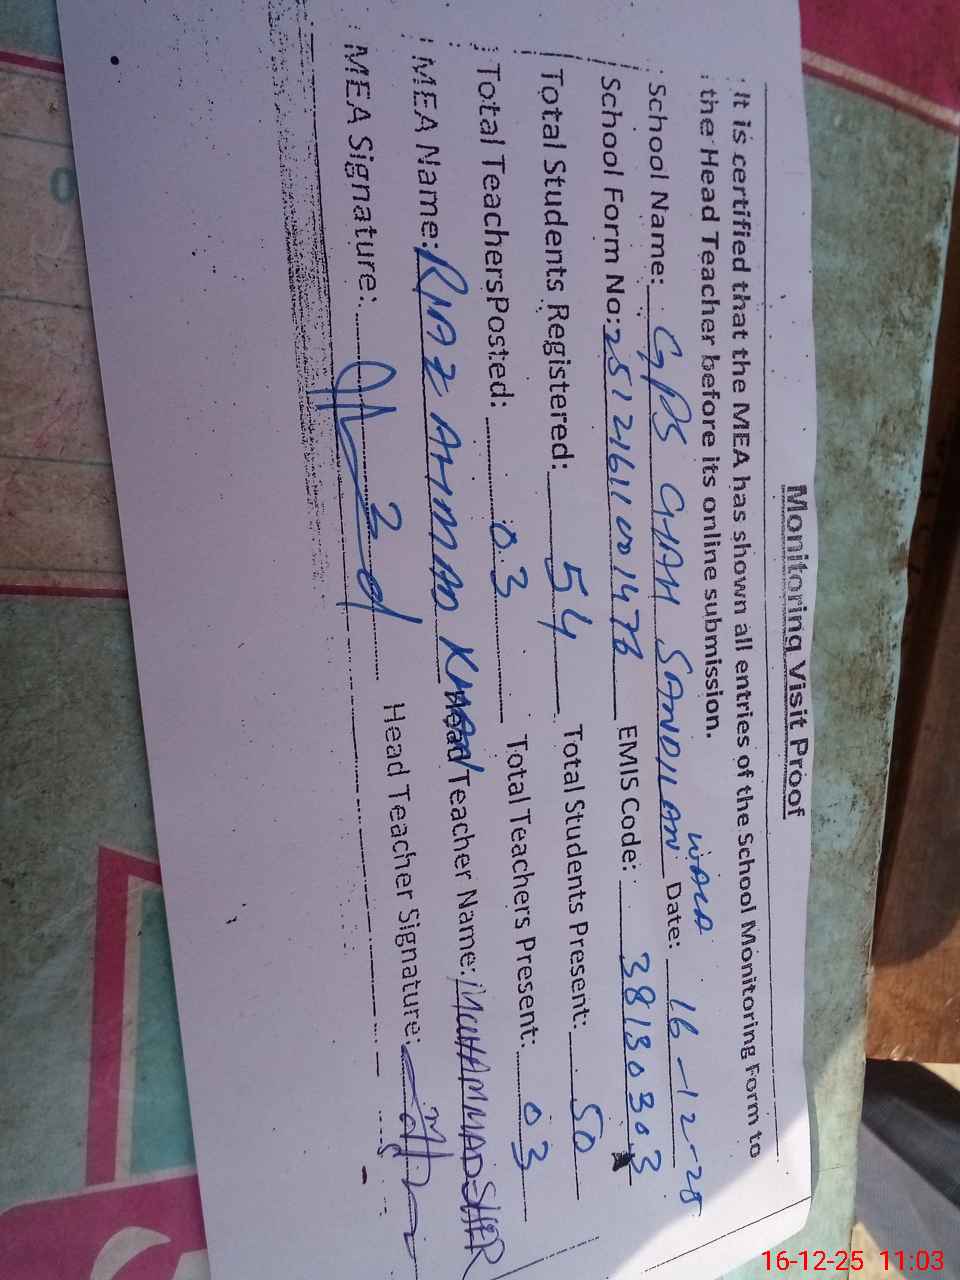 Monitoring Visit Proof
It is certified that the MEA has shown all entries of the School Monitoring Form to
the Head Teacher before its online submission.
School Name: GPS CHAH SANDILAN WALA Date: 16-12-25
School Form No: EMIS Code: 38130303
Total Students Registered: 54 Total Students Present: 50
Total TeachersPosted: 03 Total Teachers Present: 03
MEA Name: RIAZ AHMAD KHAN Head Teacher Name: MUHAMMAD SHER
MEA Signature: Head Teacher Signature:
16-12-25 11:03